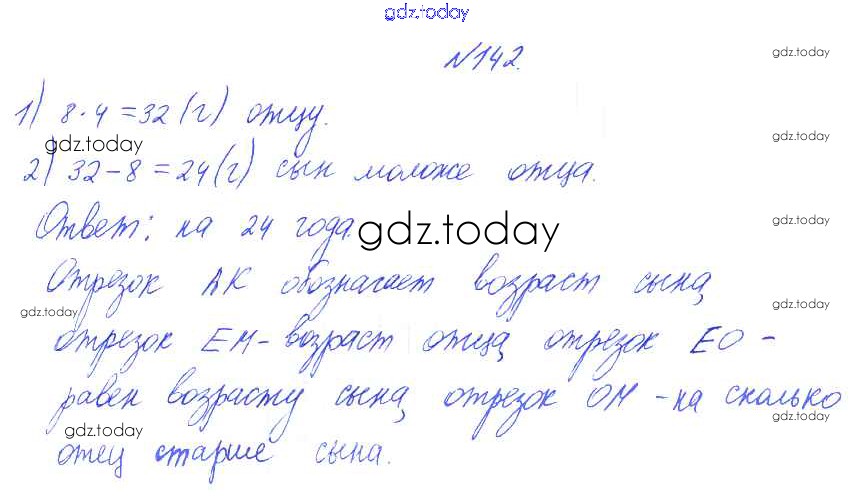 gdz.today
№142.
gdz.today
1) 8·4=32(г) отцу.
gdz.today
gdz.today
2) 32-8=24(г) сын моложе отца.
Ответ: на 24 года.
gdz.today
gdz.today
Отрезок АК обозначает возраст сына,
gdz.today
gdz.today
отрезок ЕМ-возраст отца, отрезок ЕО-
gdz.today
равен возрасту сына, отрезок ОМ -на сколько
gdz.today
gdz.today
отец старше сына.